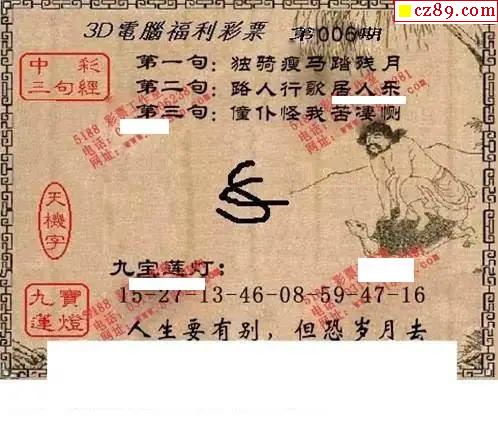 cz89.com
3D電腦福利彩票 第006期
中彩三句經
第一句:独骑瘦马踏残月
第二句:路人行歌居人乐
第三句:僮仆怪我苦凄恻
天機字
九宝莲灯:
九寶蓮燈
15-27-13-46-08-59-47-16
人生要有别,但恐岁月去